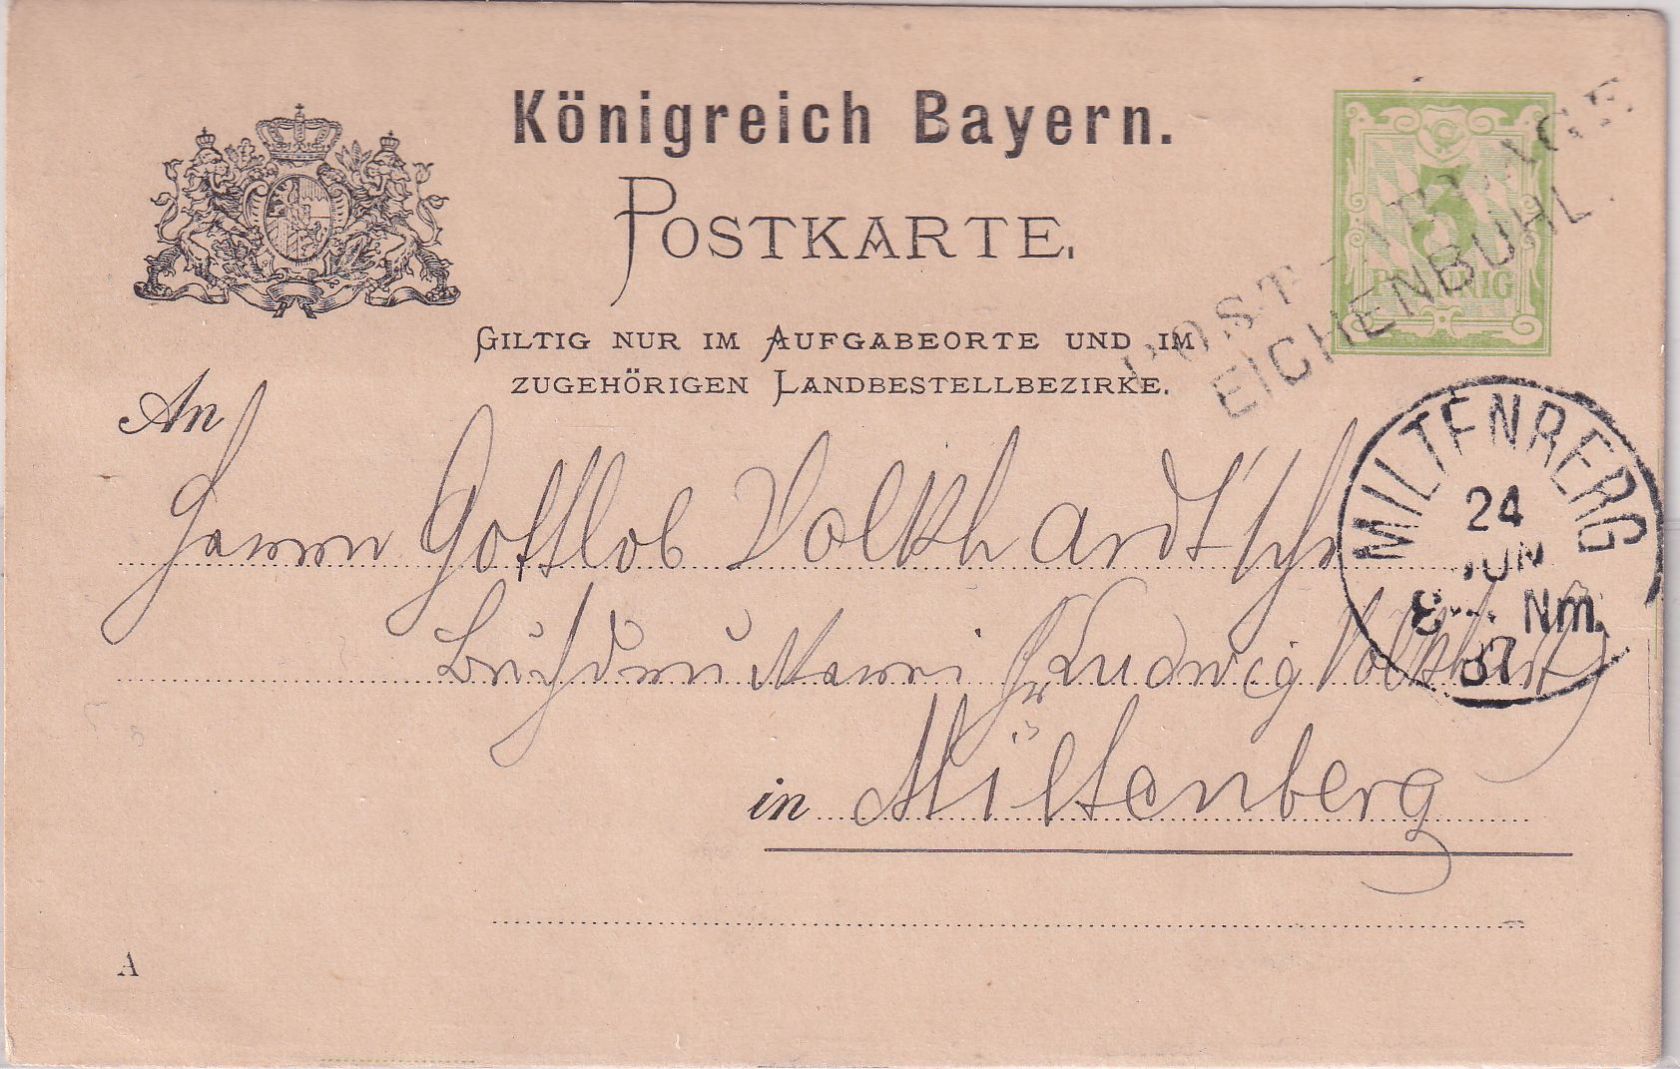 Königreich Bayern.
POSTKARTE.
GILTIG NUR IM AUFGABEORTE UND IM
ZUGEHÖRIGEN LANDBESTELLBEZIRKE.
3
PFENNIG
POSTABLAGE
EICHENBÜHL.
MILTENBERG
24
JUN
Nm.
87
An
Herrn Gottlob Volkhardt'sche
Buchdruckerei Ludwig Volkhardt
in Miltenberg
A